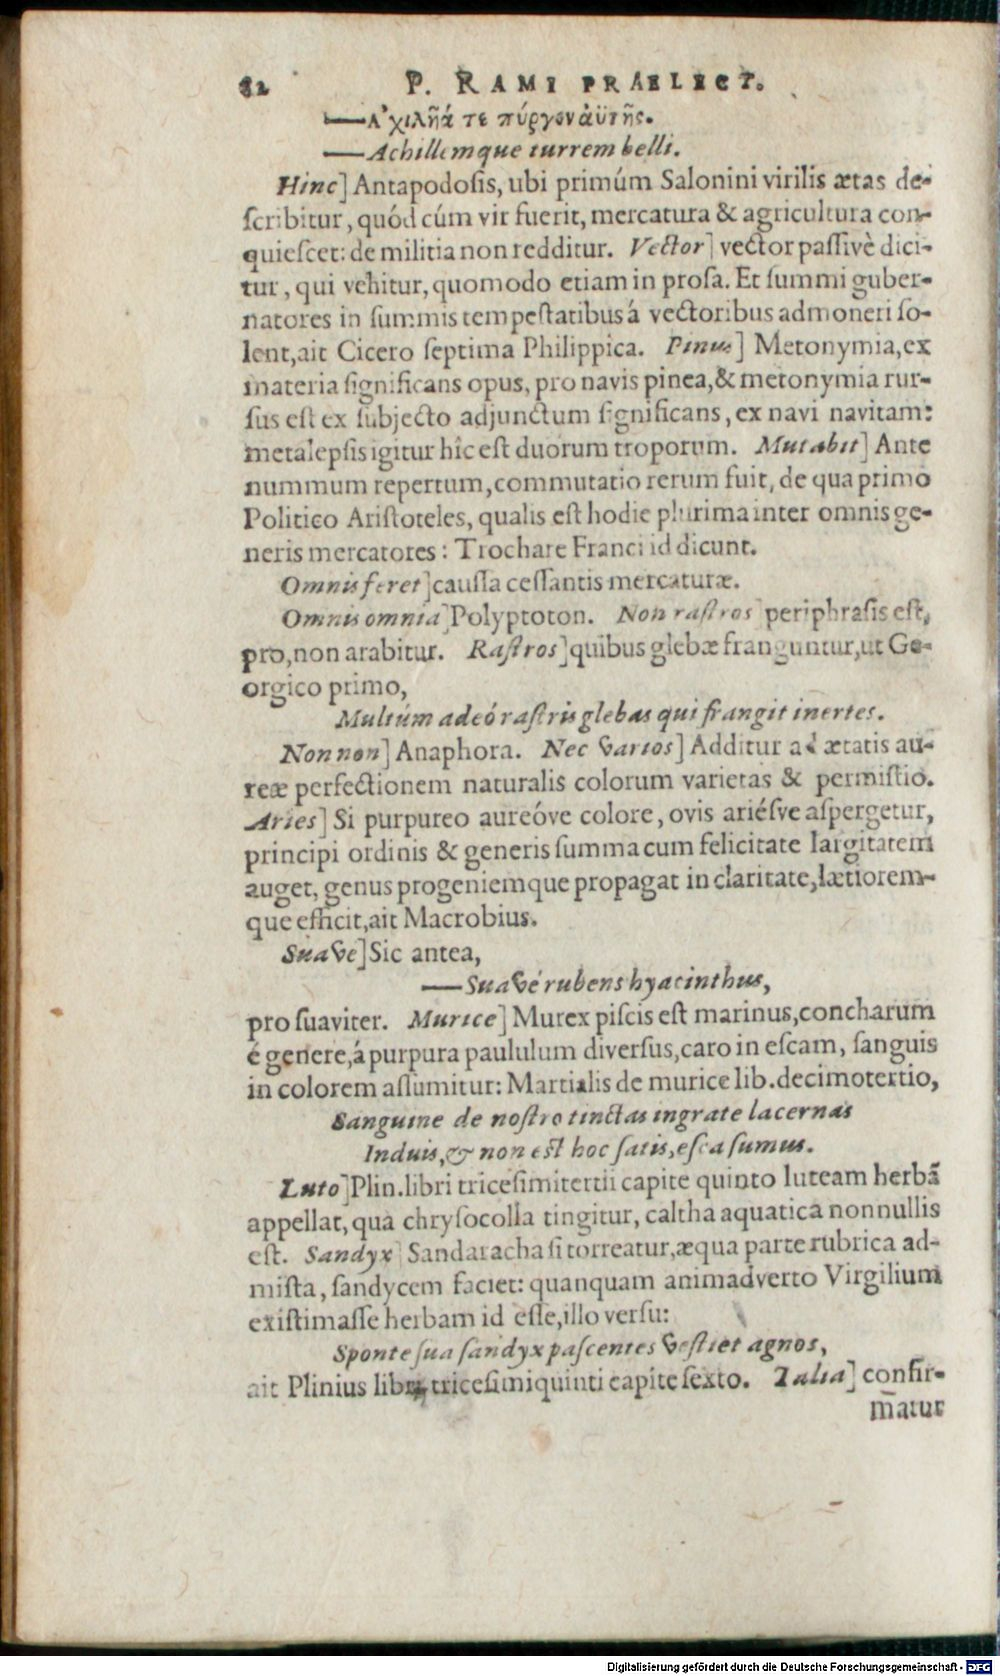 82 P. RAMI PRAELECT.
—Ἀχιλῆά τε πύργον ἀϋτῆς.
—Achillemque turrem belli.
Hinc] Antapodosis, ubi primúm Salonini virilis ætas de-
scribitur, quód cúm vir fuerit, mercatura & agricultura con-
quiescet: de militia non redditur. Vector] vector passivè dici-
tur, qui vehitur, quomodo etiam in prosa. Et summi guber-
natores in summis tempestatibus á vectoribus admoneri so-
lent, ait Cicero septima Philippica. Pinus] Metonymia, ex
materia significans opus, pro navis pinea, & metonymia rur-
sus est ex subjecto adjunctum significans, ex navi navitam:
metalepsis igitur hîc est duorum troporum. Mutabit] Ante
nummum repertum, commutatio rerum fuit, de qua primo
Politico Aristoteles, qualis est hodie plurima inter omnis ge-
neris mercatores: Trochare Franci id dicunt.
Omnis feret] caussa cessantis mercaturæ.
Omnis omnia] Polyptoton. Non rastros] periphrasis est,
pro, non arabitur. Rastros] quibus glebæ franguntur, ut Ge-
orgico primo,
Multúm adeó rastris glebas qui frangit inertes.
Non non] Anaphora. Nec varios] Additur ad ætatis au-
reæ perfectionem naturalis colorum varietas & permistio.
Aries] Si purpureo aureóve colore, ovis ariésve aspergetur,
principi ordinis & generis summa cum felicitate largitatem
auget, genus progeniemque propagat in claritate, lætiorem-
que efficit, ait Macrobius.
Suave] Sic antea,
—Suavé rubens hyacinthus,
pro suaviter. Murice] Murex piscis est marinus, concharum
é genere, á purpura paululum diversus, caro in escam, sanguis
in colorem assumitur: Martialis de murice lib. decimotertio,
Sanguine de nostro tinctas ingrate lacernas
Induis, & non est hoc satis, esca sumus.
Luto] Plin. libri tricesimitertii capite quinto luteam herbã
appellat, qua chrysocolla tingitur, caltha aquatica nonnullis
est. Sandyx] Sandaracha si torreatur, æqua parte rubrica ad-
mista, sandycem faciet: quanquam animadverto Virgilium
existimasse herbam id esse, illo versu:
Sponte sua sandyx pascentes vestiet agnos,
ait Plinius libri tricesimiquinti capite sexto. Talia] confir-
matur
Digitalisierung gefördert durch die Deutsche Forschungsgemeinschaft - DFG